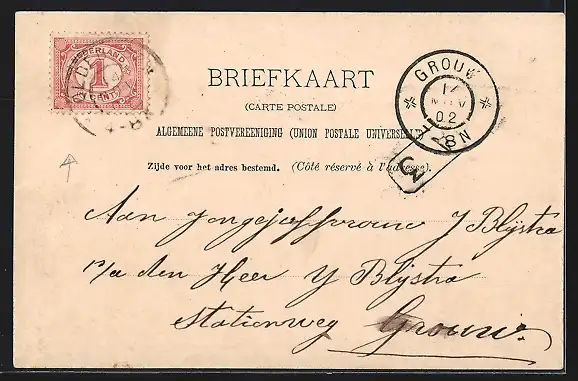 NEDERLAND
1
CENT
BRIEFKAART
(CARTE POSTALE)
ALGEMEENE POSTVEREENIGING (UNION POSTALE UNIVERSELLE)
Zijde voor het adres bestemd. (Côté réservé à l'adresse).
GROUW
17
NOV
02
8N
3
Aan Jongejuffrouw J Blijstra
p/a den Heer Y Blijstra
Stationweg Grouw.